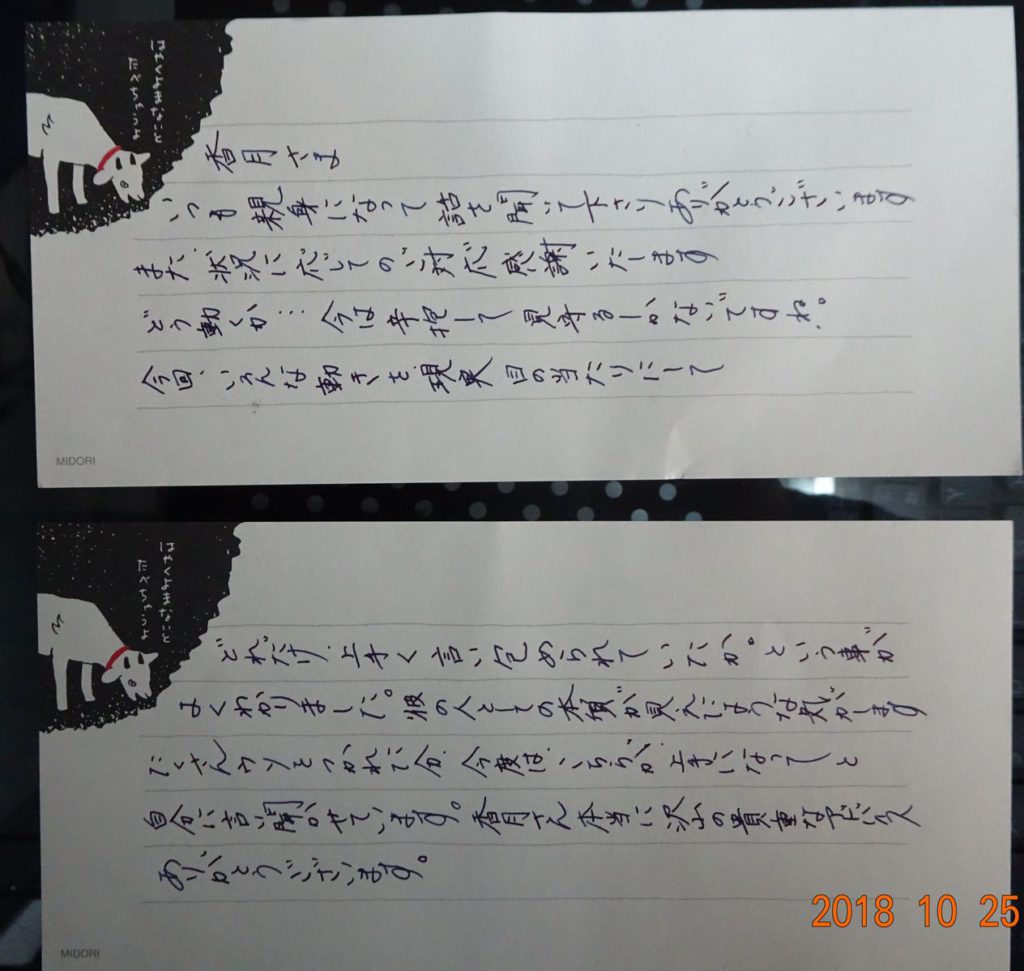 はやくよまないと
たべちゃうよ
香月さま
いつも親身になって話を聞いて下さりありがとうございます
また、状況に応じてのご対応感謝いたします
どう動くか…今は辛抱して見守るしかないですね。
今回、いろんな動きを現実目の当たりにして
MIDORI
はやくよまないと
たべちゃうよ
どれだけ上手く言い包められていたか。という事が
よくわかりました。彼の人としての本質が見えたような気がします
たくさんウソをつかれた分、今度はこちらが上手になってしと
自分に言い聞かせています。香月さん本当に沢山の貴重なアドバイス
ありがとうございます。
MIDORI
2018 10 25